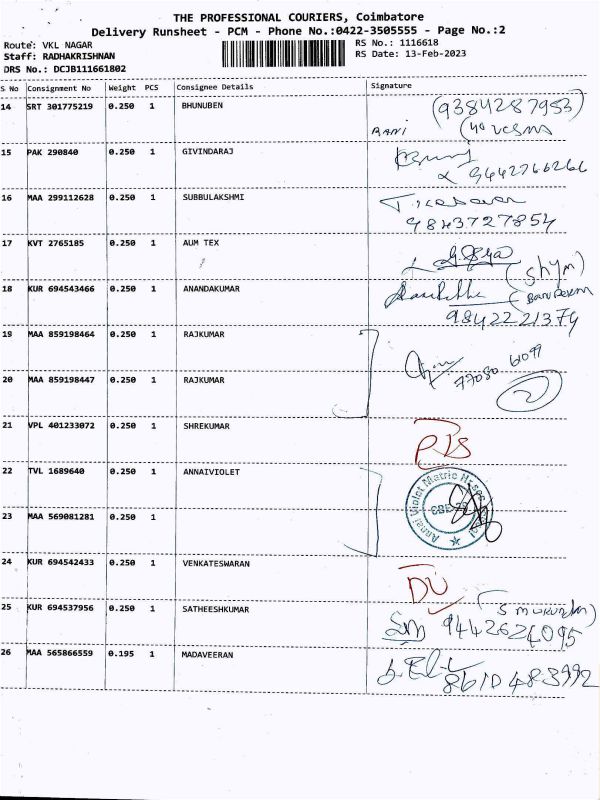 THE PROFESSIONAL COURIERS, Coimbatore
Delivery Runsheet - PCM - Phone No.:0422-3505555 - Page No.:2
Route: VKL NAGAR
RS No.: 1116618
Staff: RADHAKRISHNAN
RS Date: 13-Feb-2023
DRS No.: DCJB111661802
S No Consignment No Weight PCS Consignee Details Signature
14 SRT 301775219 0.250 1 BHUNUBEN (9384287953)
RANI
15 PAK 290840 0.250 1 GIVINDARAJ
9442766266
16 MAA 299112628 0.250 1 SUBBULAKSHMI
9843727854
17 KVT 2765185 0.250 1 AUM TEX
(Shym)
18 KUR 694543466 0.250 1 ANANDAKUMAR
9842221374
19 MAA 859198464 0.250 1 RAJKUMAR
77080 6099
20 MAA 859198447 0.250 1 RAJKUMAR
2
21 VPL 401233072 0.250 1 SHREKUMAR
22 TVL 1689640 0.250 1 ANNAIVIOLET
Annai Violet Matric Hr.Sec
23 MAA 569081281 0.250 1
24 KUR 694542433 0.250 1 VENKATESWARAN
DU
25 KUR 694537956 0.250 1 SATHEESHKUMAR
9442624095
26 MAA 565866559 0.195 1 MADAVEERAN
8610483992